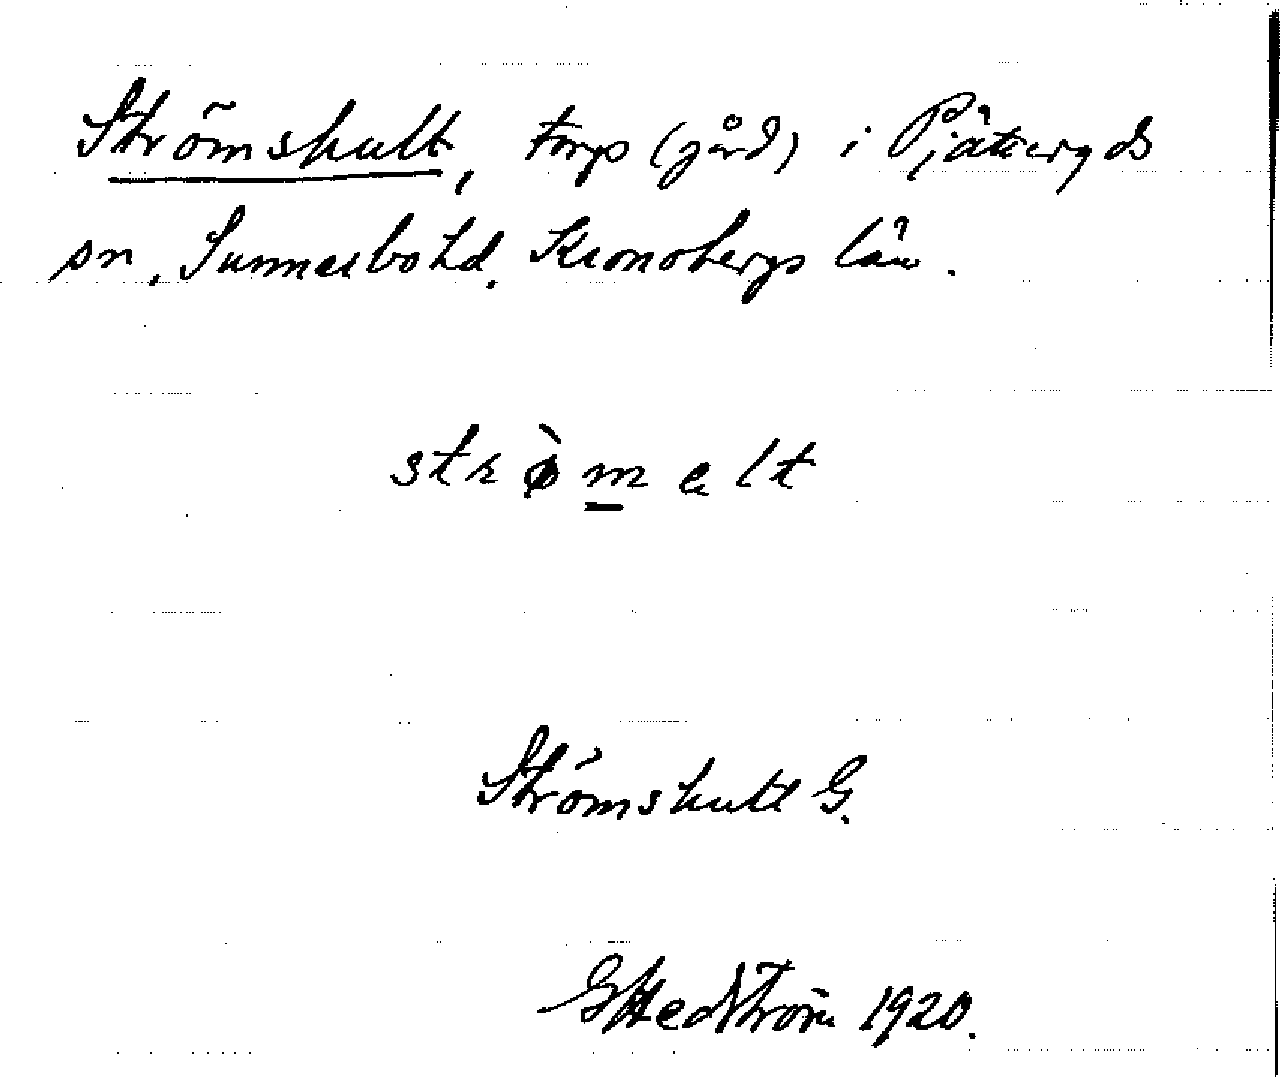 Strömshult, torp (gård) i Pjätteryds
sn, Sunnerbo hd. Kronobergs län.
strø̀m̲ɐlt
Strömshult G.
G Hedström 1920.